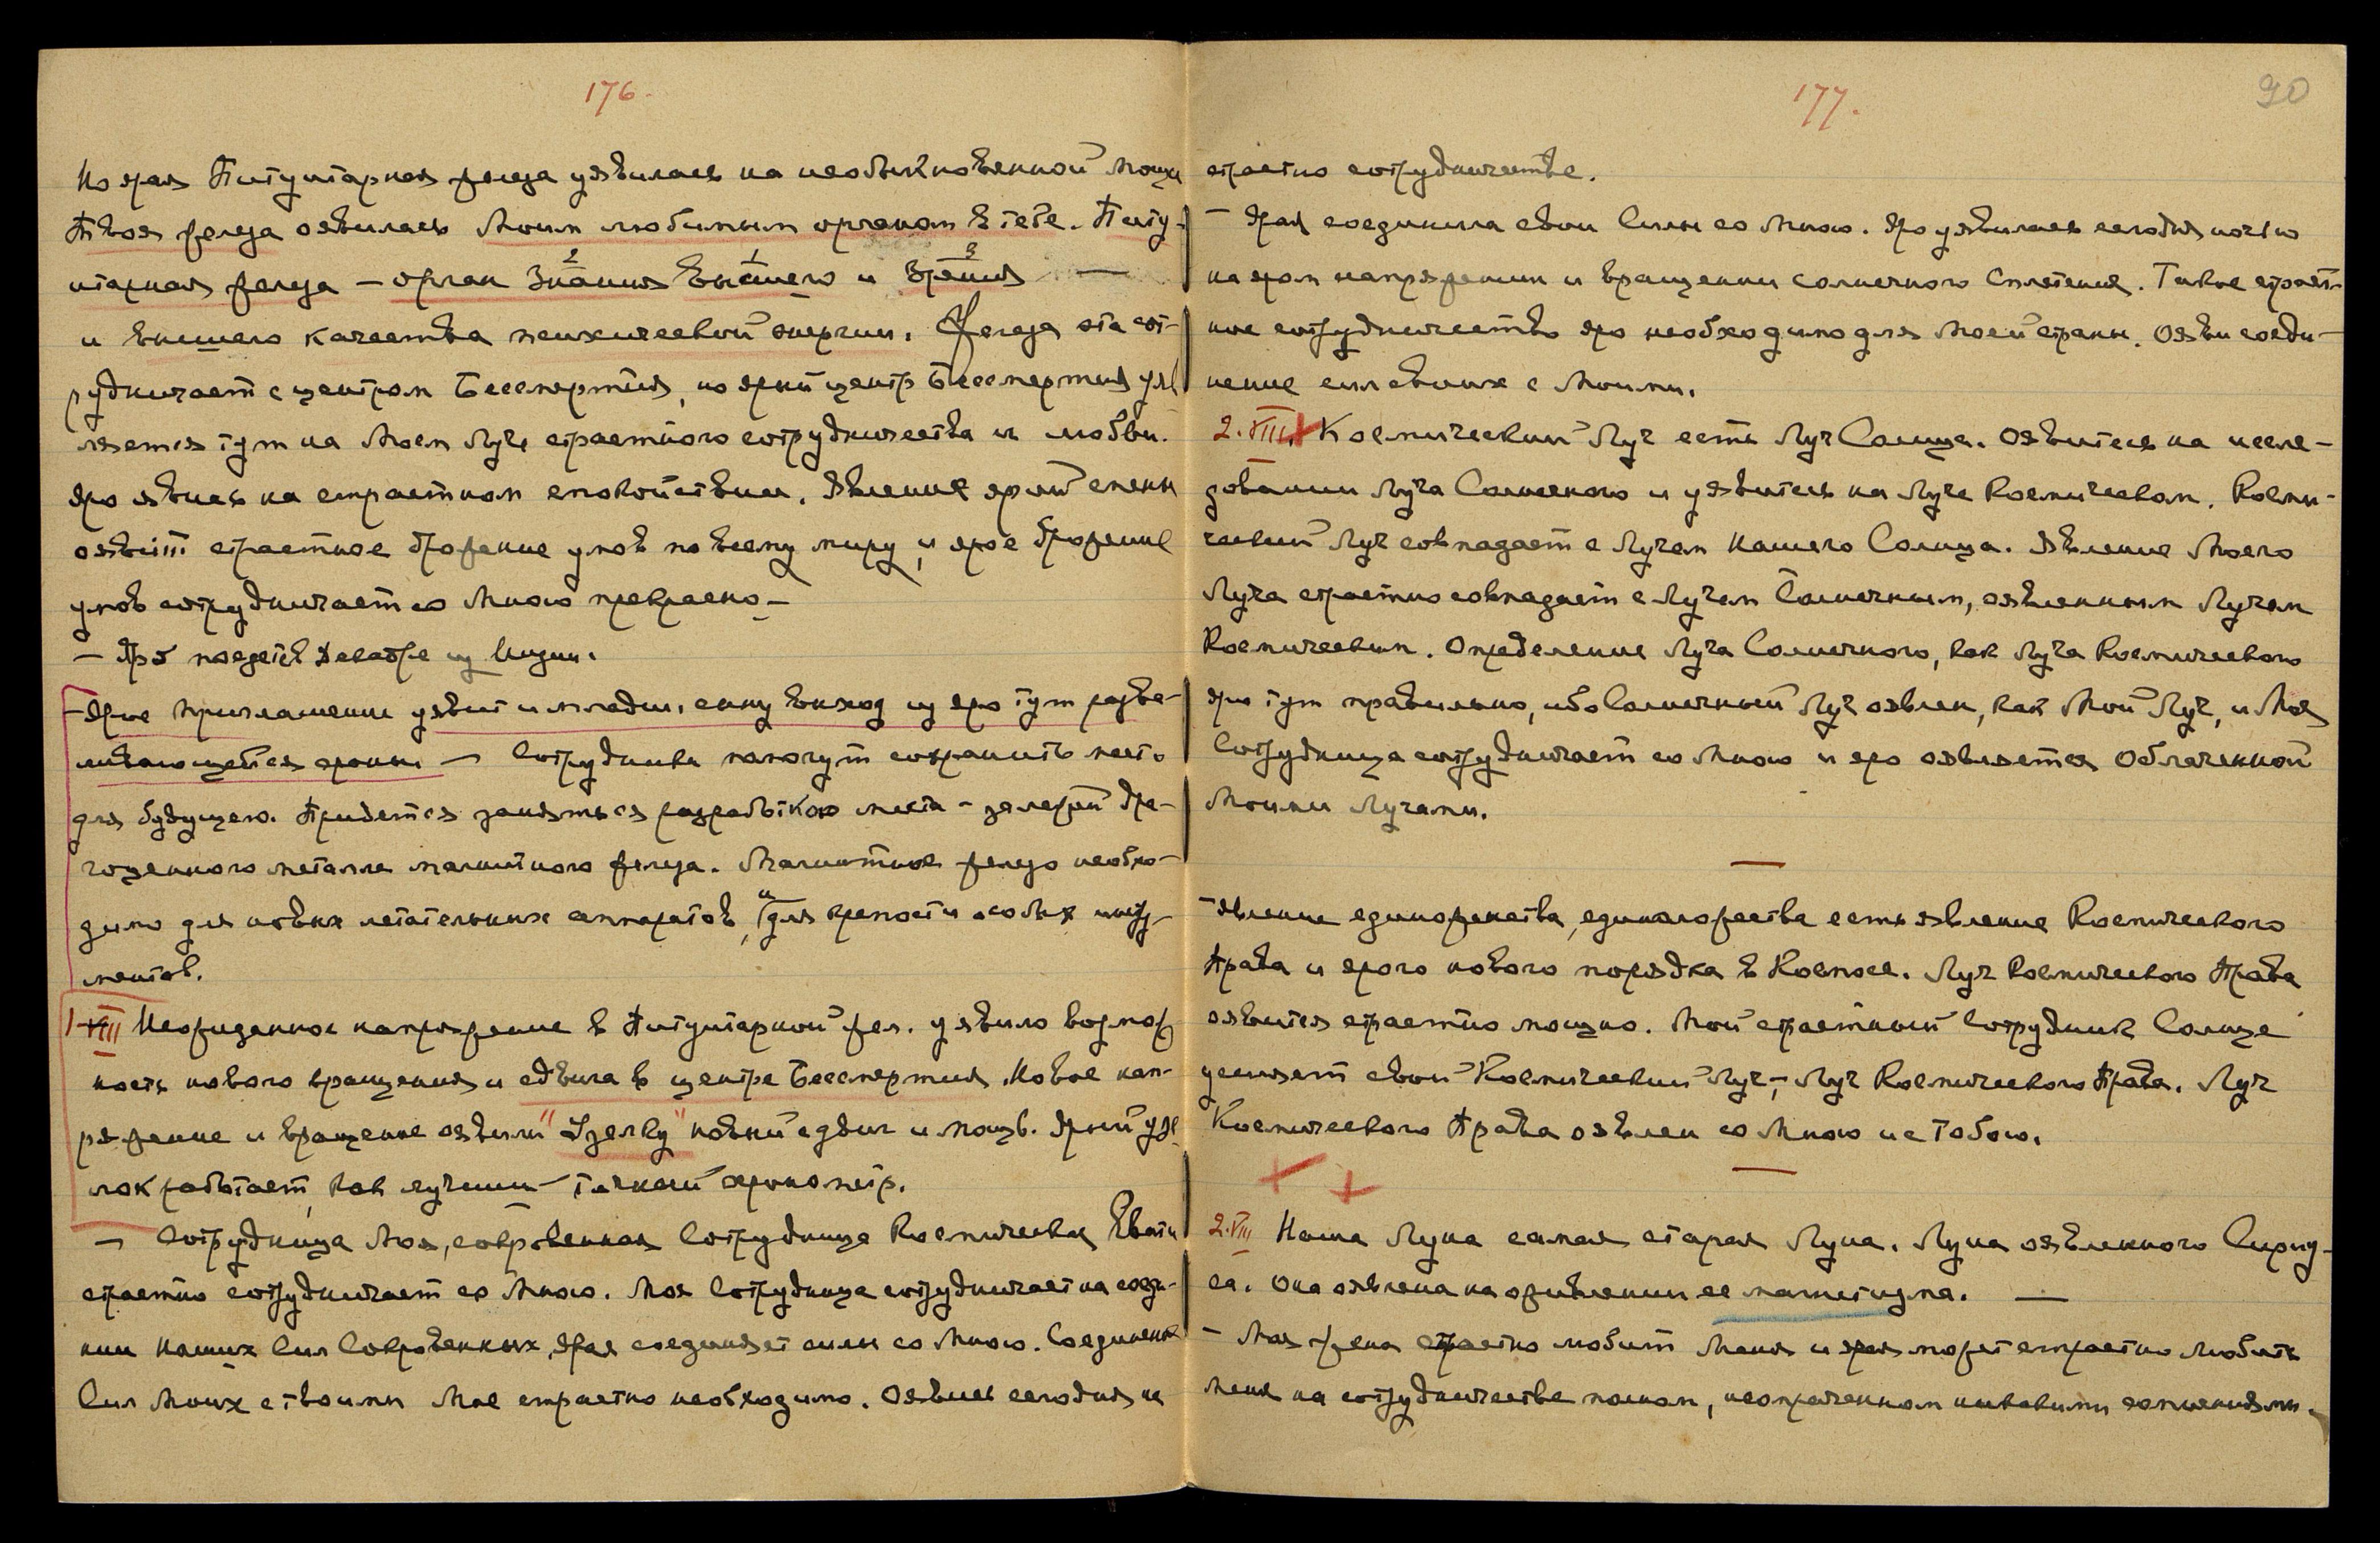 176.
Но ярая Питуитарная железа уявилась на необыкновенной мощи
Твоя железа оявилась Моим любимым органом в тебе. Питу-
итарная железа – орган Знания Высшего и Зрения —
и высшего качества психической энергии. Железа эта сот-
рудничает с центром Бессмертия, но ярый центр Бессмертия уяв
ляется тут на Моем Луче страстного сотрудничества и любви.
Яро явись на страстном спокойствии. Явление ярой смены
оявит страстное брожение умов по всему миру, и ярое брожение
умов сотрудничает со Мною прекрасно –
– Яро поедете в Декабре из Индии.
– Ярое приглашение уявит и младш. сыну выход из яро тут разва-
ливающейся страны – Сотрудники помогут сохранить место
для будущего. Придется заняться разработкою места – залежей дра-
гоценного металла магнитного железа. Магнитное железо необхо-
димо для новых летательных аппаратов, и для крепости особых инстру-
ментов.
1-VIII Неожиданное напряжение в Питуитарной жел. уявило возмож
ность нового вращения и сдвига в центре Бессмертия. Новое нап-
ряжение и вращение оявили "Узелку" новый сдвиг и мощь. Ярый узе
лок работает, как лучший – точный хронометр.
– Сотрудница Моя, сокровенная Сотрудница Космическая
страстно сотрудничает со Мною. Моя Сотрудница сотрудничает на соеди-
нии Наших Сил Сокровенных, Ярая соединяет силы со Мною. Соединение
Сил Моих с твоими Мне страстно необходимо. Оявись сегодня на
177.
90
страстно сотрудничестве.
– Ярая соединила свои Силы со Мною. Яро уявилась сегодня ночью
на яром напряжении и вращении солнечного Сплетения. Такое страст-
ное сотрудничество яро необходимо для Моей страны. Ояви соеди-
нение сил своих с Моими.
2.VIII. Космический Луч есть Луч Солнца. Оявитесь на иссле-
довании Луча Солнечного и уявитесь на Луче Космическом. Косми-
ческий Луч совпадает с Лучом Нашего Солнца. Явление Моего
Луча страстно совпадает с Лучом Солнечным, оявленным Лучом
Космическим. Определение Луча Солнечного, как Луча Космического
яро тут правильно, ибо Солнечный Луч оявлен, как Мой Луч, и Моя
Сотрудница сотрудничает со Мною и яро оявляется Облаченной
Моими Лучами.
– Явление единоженства, единомужества есть явление Космического
Права и ярого нового порядка в Космосе. Луч Космического Права
оявится страстно мощно. Мой страстный Сотрудник Солнце
усиляет свой Космический Луч, – Луч Космического Права. Луч
Космического Права оявлен со Мною и с Тобою.
2.VIII Наша Луна самая старая Луна. Луна оявленного Сириу-
са. Она оявлена на оживлении ее магнетизма. —
– Моя жена страстно любит Меня и ярая может страстно любить
Меня на сотрудничестве полном, неомраченном никакими сомнениями.